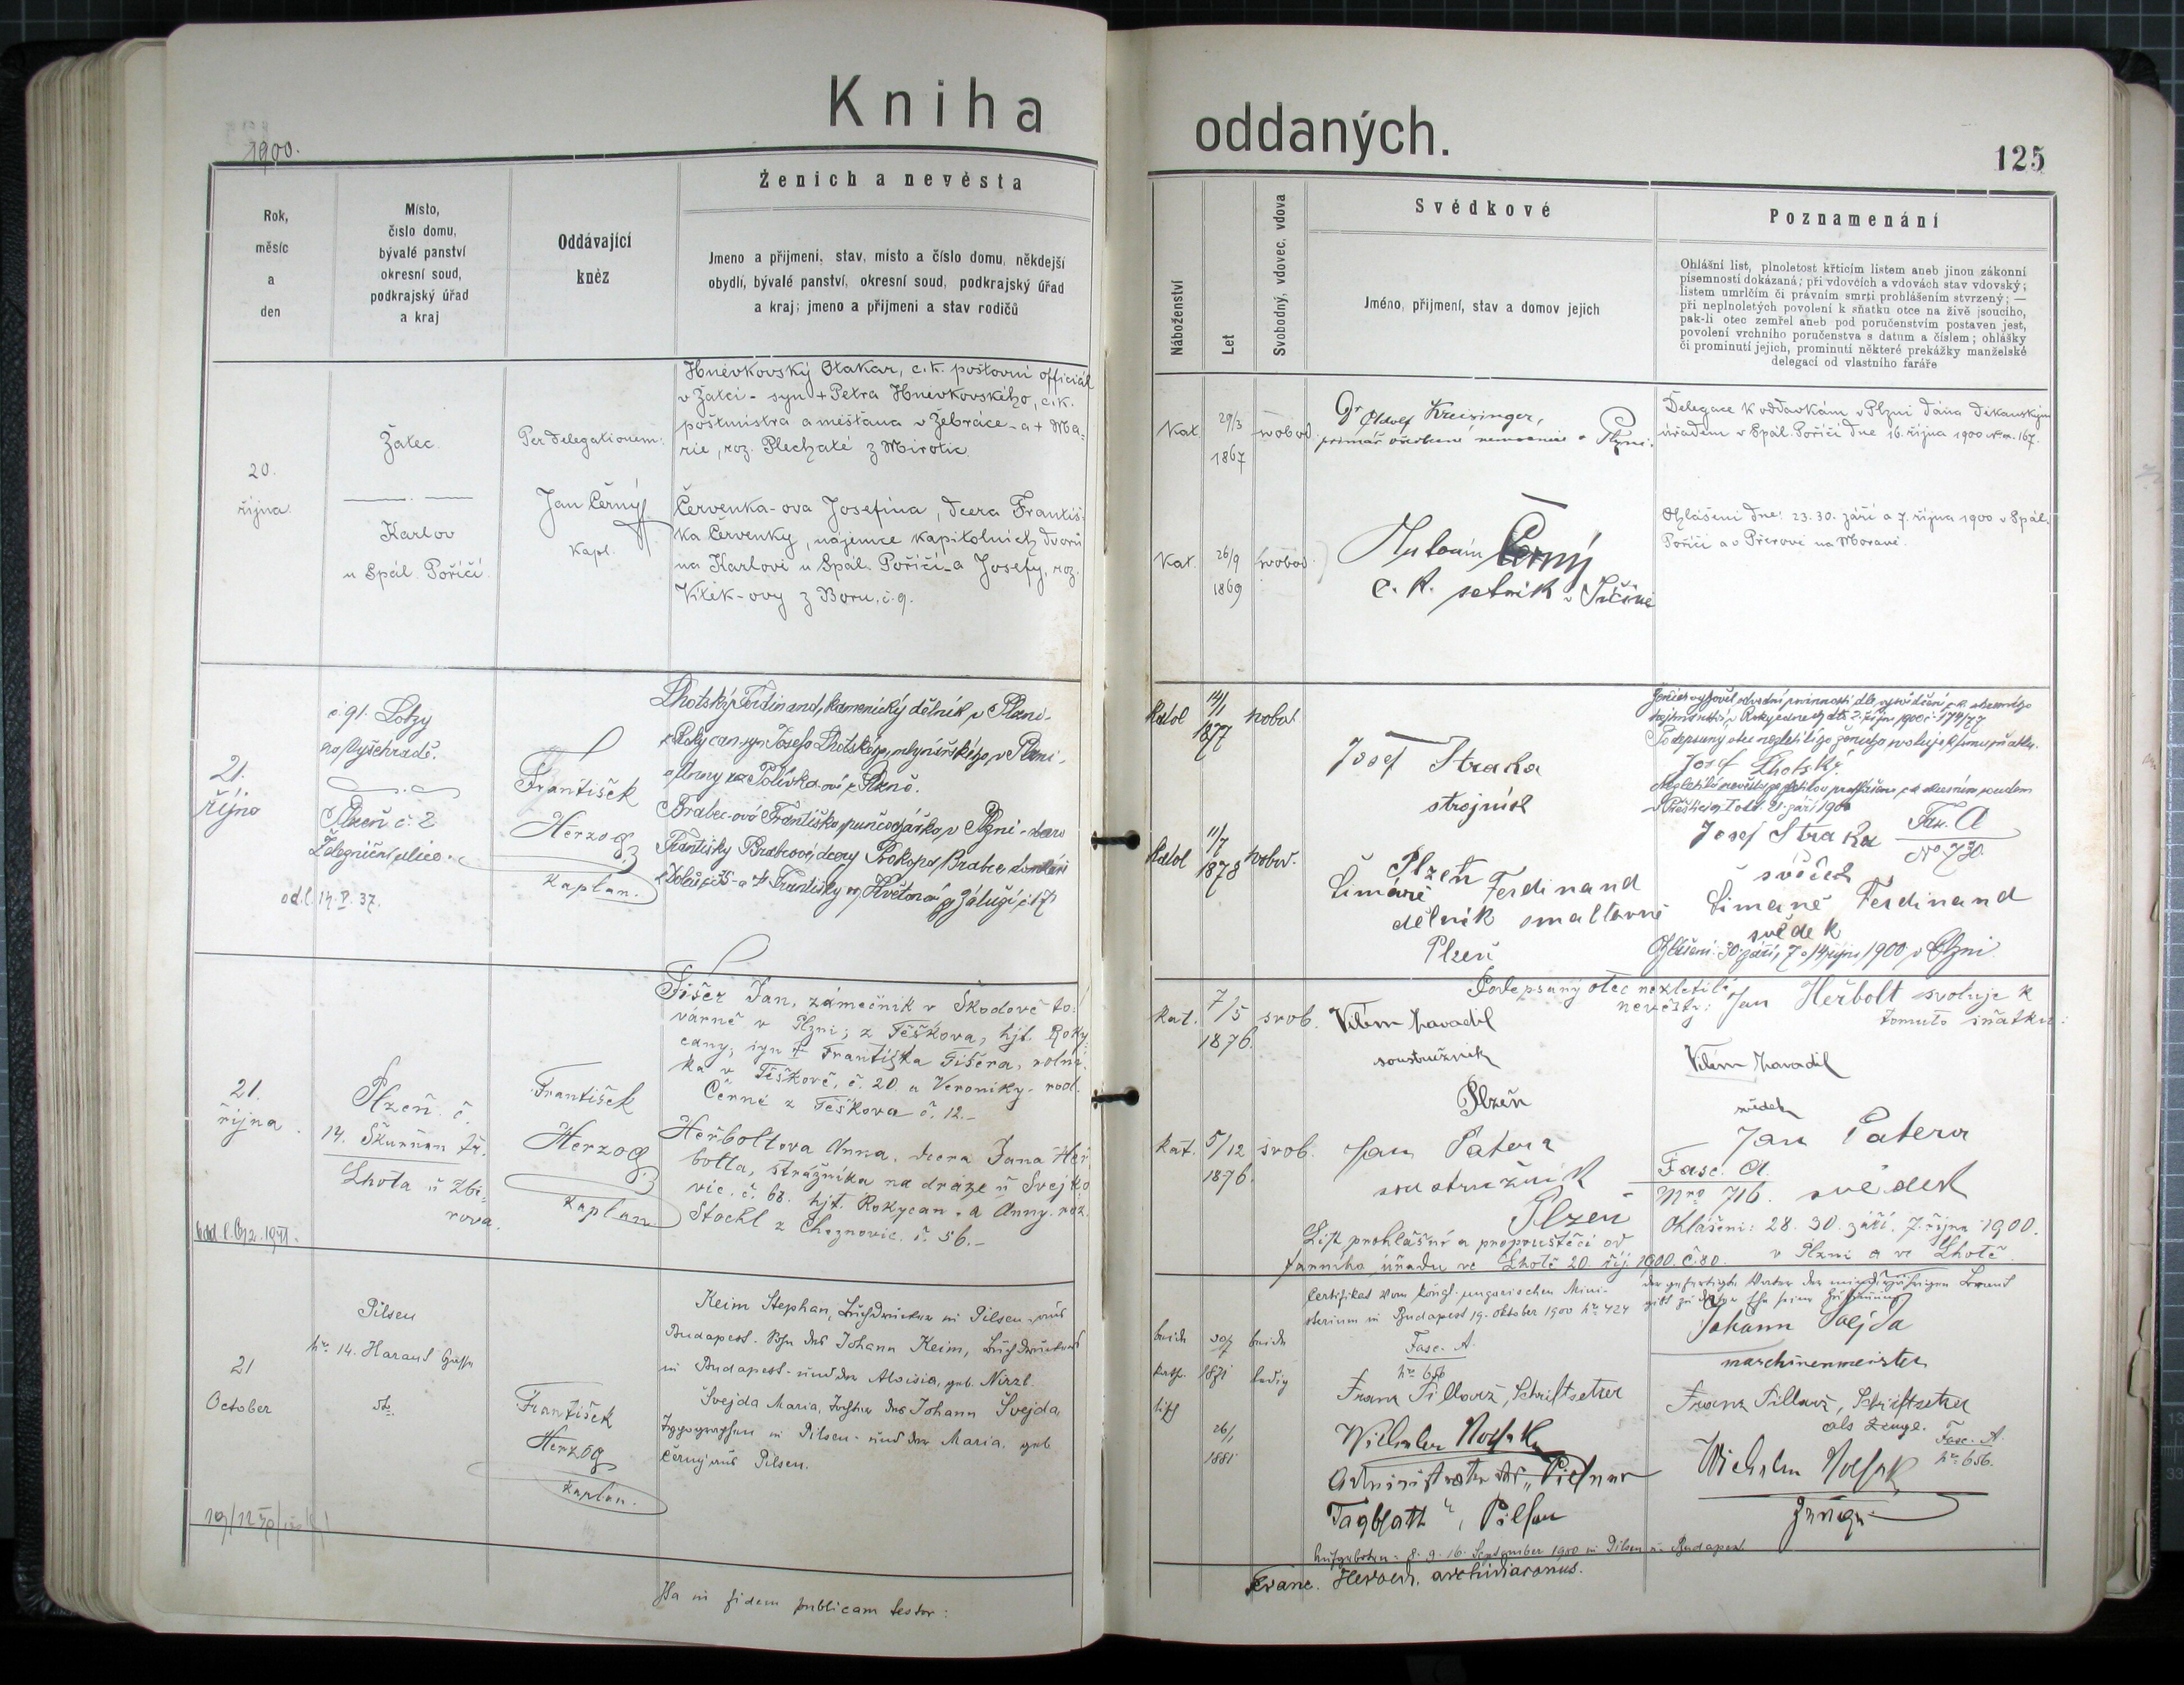 Kniha
oddaných.
1900.
125
Rok,
měsíc
a
den
Místo,
číslo domu,
bývalé panství
okresní soud,
podkrajský úřad
a kraj
Oddávající
kněz
Ženich a nevěsta
Jmeno a přijmeni, stav, misto a číslo domu, někdejší
obydlí, bývalé panství, okresní soud, podkrajský úřad
a kraj; jmeno a přijmeni a stav rodičů
Náboženství
Let
Svobodný, vdovec, vdova
Svědkové
Jméno, přijmení, stav a domov jejich
Poznamenání
Ohlášní list, plnoletost křticím listem aneb jinou zákonní
písemností dokázaná; při vdovčích a vdovách stav vdovský;
listem umrlčím či právním smrti prohlášením stvrzený; —
při neplnoletých povolení k sňatku otce na živě jsoucího,
pak-li otec zemřel aneb pod poručenstvím postaven jest,
povolení vrchního poručenstva s datum a číslem; ohlášky
či prominutí jejich, prominutí některé prekážky manželské
delegací od vlastního faráře
20.
října
Žatec.
Karlov
u Spál. Poříčí.
Per delegationem:
Jan Černý
Kapl.
Hněvkovský Otakar, c.k. poštovní officiál
v Žatci - syn + Petra Hněvkovského, c.k.
poštmistra a měšťana v Žebráce - a + Ma-
rie, roz. Plechaté z Mirotic.
Červenka-ova Josefina, dcera Františ-
ka Červenky, nájemce kapitolních dvorů
na Karlově u Spál. Poříčí - a Josefy, roz.
Vílek-ovy z Boru, č. 9.
Kat.
29/3
1867
svobod.
Kat.
26/9
1869
svobod.
Dr Adolf Kreisinger,
primář všeobecné nemocnice v Plzni.
Antonín Černý
c. k. setník v Jičíně
Delegace k oddavkám v Plzni dána děkanským
úřadem v Spál. Poříčí dne 16. října 1900 No. 167.
Ohlášeni dne: 23. 30. září a 7. října 1900 v Spál.
Poříčí a v Přerově na Moravě.
21.
října
č. 91. Lobzy
na Vyšehradě.
Plzeň č. 2
Železniční ulice.
od.l. 14. V. 37.
František
Herzog
Kaplan.
Lhotský Ferdinand, kamenický dělník v Plzni -
z Rokycan - syn Josefa Lhotského, v Plzni -
a Anny roz. Polívka-ové z Plzně.
Brabec-ová Františka, punčochářka v Plzni - dcera
Františky Brabcové, dcery Prokopa Brabce,
a + Františky roz. Květoňové z Záluží č. 17
Katol
14/1
1877
svobod.
Katol
11/7
1878
svobod.
Josef Straka
strojník
Plzeň
Šimáně Ferdinand
dělník smaltovně
Plzeň
Podepsaný otec nezletilého ženicha svoluje k tomu sňatku.
Josef Lhotský
Josef Straka
svědek
Fasc. A
No. 730.
Šimáně Ferdinand
svědek
Ohlášeni: 30. září, 7. a 14. října 1900 v Plzni.
21.
října.
Plzeň č.
14. Škvrňan. tř.
Lhota u Zbi-
rova.
František
Herzog
Kaplan
Fišer Jan, zámečník v Škodově to-
várně v Plzni; z Těškova, hjt. Roky-
cany; syn + Františka Fišera, rolní-
ka v Těškově, č. 20 a Veroniky - rod.
Černé z Těškova č. 12. -
Heřboltova Anna, dcera Jana Heř-
bolta, strážníka na dráze u Svejko-
vic. č. 68. hjt. Rokycan - a Anny. roz.
Stöckl z Cheznovic. č. 56. -
Kat.
7/5
1876.
svob.
Kat.
5/12
1876.
svob.
Vilém Navadil
soustružník
Plzeň
Jan Patera
soustružník
Plzeň
List prohlášní a propouštěcí od
farního úřadu ve Lhotě 20. říj. 1900. č. 80.
Podepsaný otec nezletilé
nevěsty: Jan Heřbolt svoluje k
tomuto sňatku.
Vilém Navadil
svědek
Jan Patera
svědek
Fasc. A.
Nro 716.
Ohlášeni: 28. 30. září. 7. října 1900.
v Plzni a ve Lhotě.
21
October
Pilsen
No. 14. Harant Gasse
František
Herzog
Kaplan.
Keim Stephan, Buchdrucker in Pilsen aus
Budapest. Sohn des Johann Keim, Buchdruckers
in Budapest - und der Aloisia, geb. Nirzl.
Švejda Maria, Tochter des Johann Švejda,
Typographen in Pilsen - und der Maria, geb.
Černý aus Pilsen.
beide
kath.
1871
beide
ledig
26/1
1881
Certifikat vom königl. ungarischen Mini-
sterium in Budapest 19. Oktober 1900 No. 424
Fasc. A.
No. 656
Franz Pillavř, Schriftsetzer
Administrator des "Pilsner
Tagblatt", Pilsen
der gefertigte Vater der minderjährigen Braut
gibt zu dieser Ehe seine Zustimmung
Johann Švejda
maschinenmeister
Franz Pillavř, Schriftsetzer
als Zeuge.
Fasc. A.
No. 656.
Zeuge
Aufgeboten: 8. 9. 16. September 1900 in Pilsen u. Budapest
Ita in fidem publicam testor:
Franc. Herzog, archidiaconus.